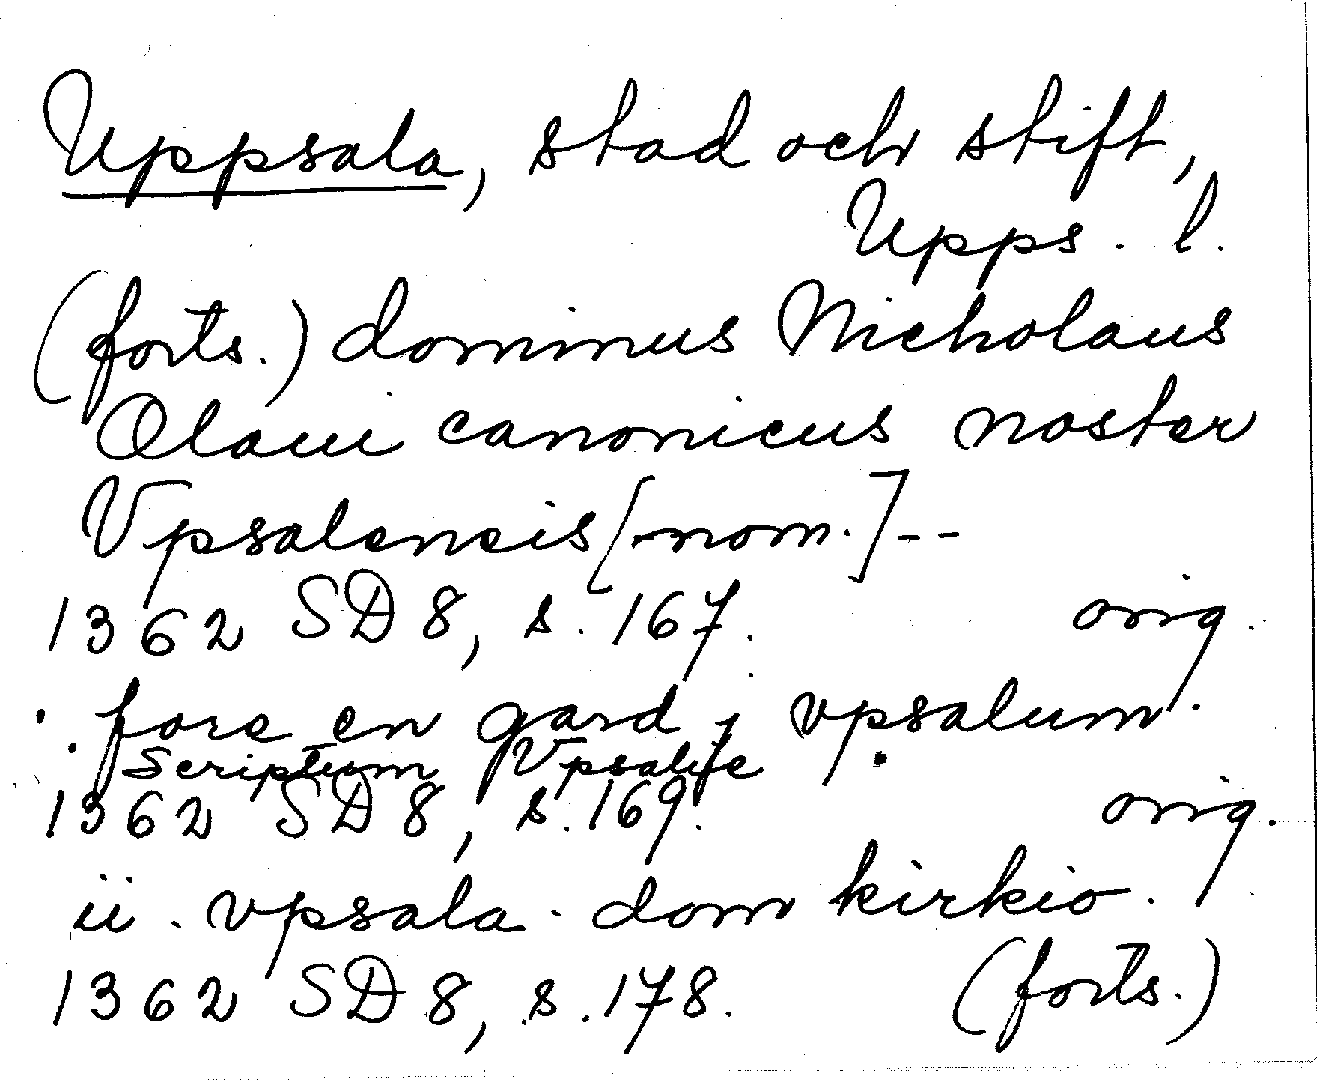 Uppsala, stad och stift,
Upps. l.
(forts.) dominus Nicholaus
Olaui canonicus noster
Vpsalensis [nom.] --
1362 SD 8, s. 167. orig.
. fore en gard j vpsalum.
Scriptum Vpsalie
1362 SD 8, s. 169. orig.
ii . vpsala . dom kirkio .
1362 SD 8, s. 178. (forts.)